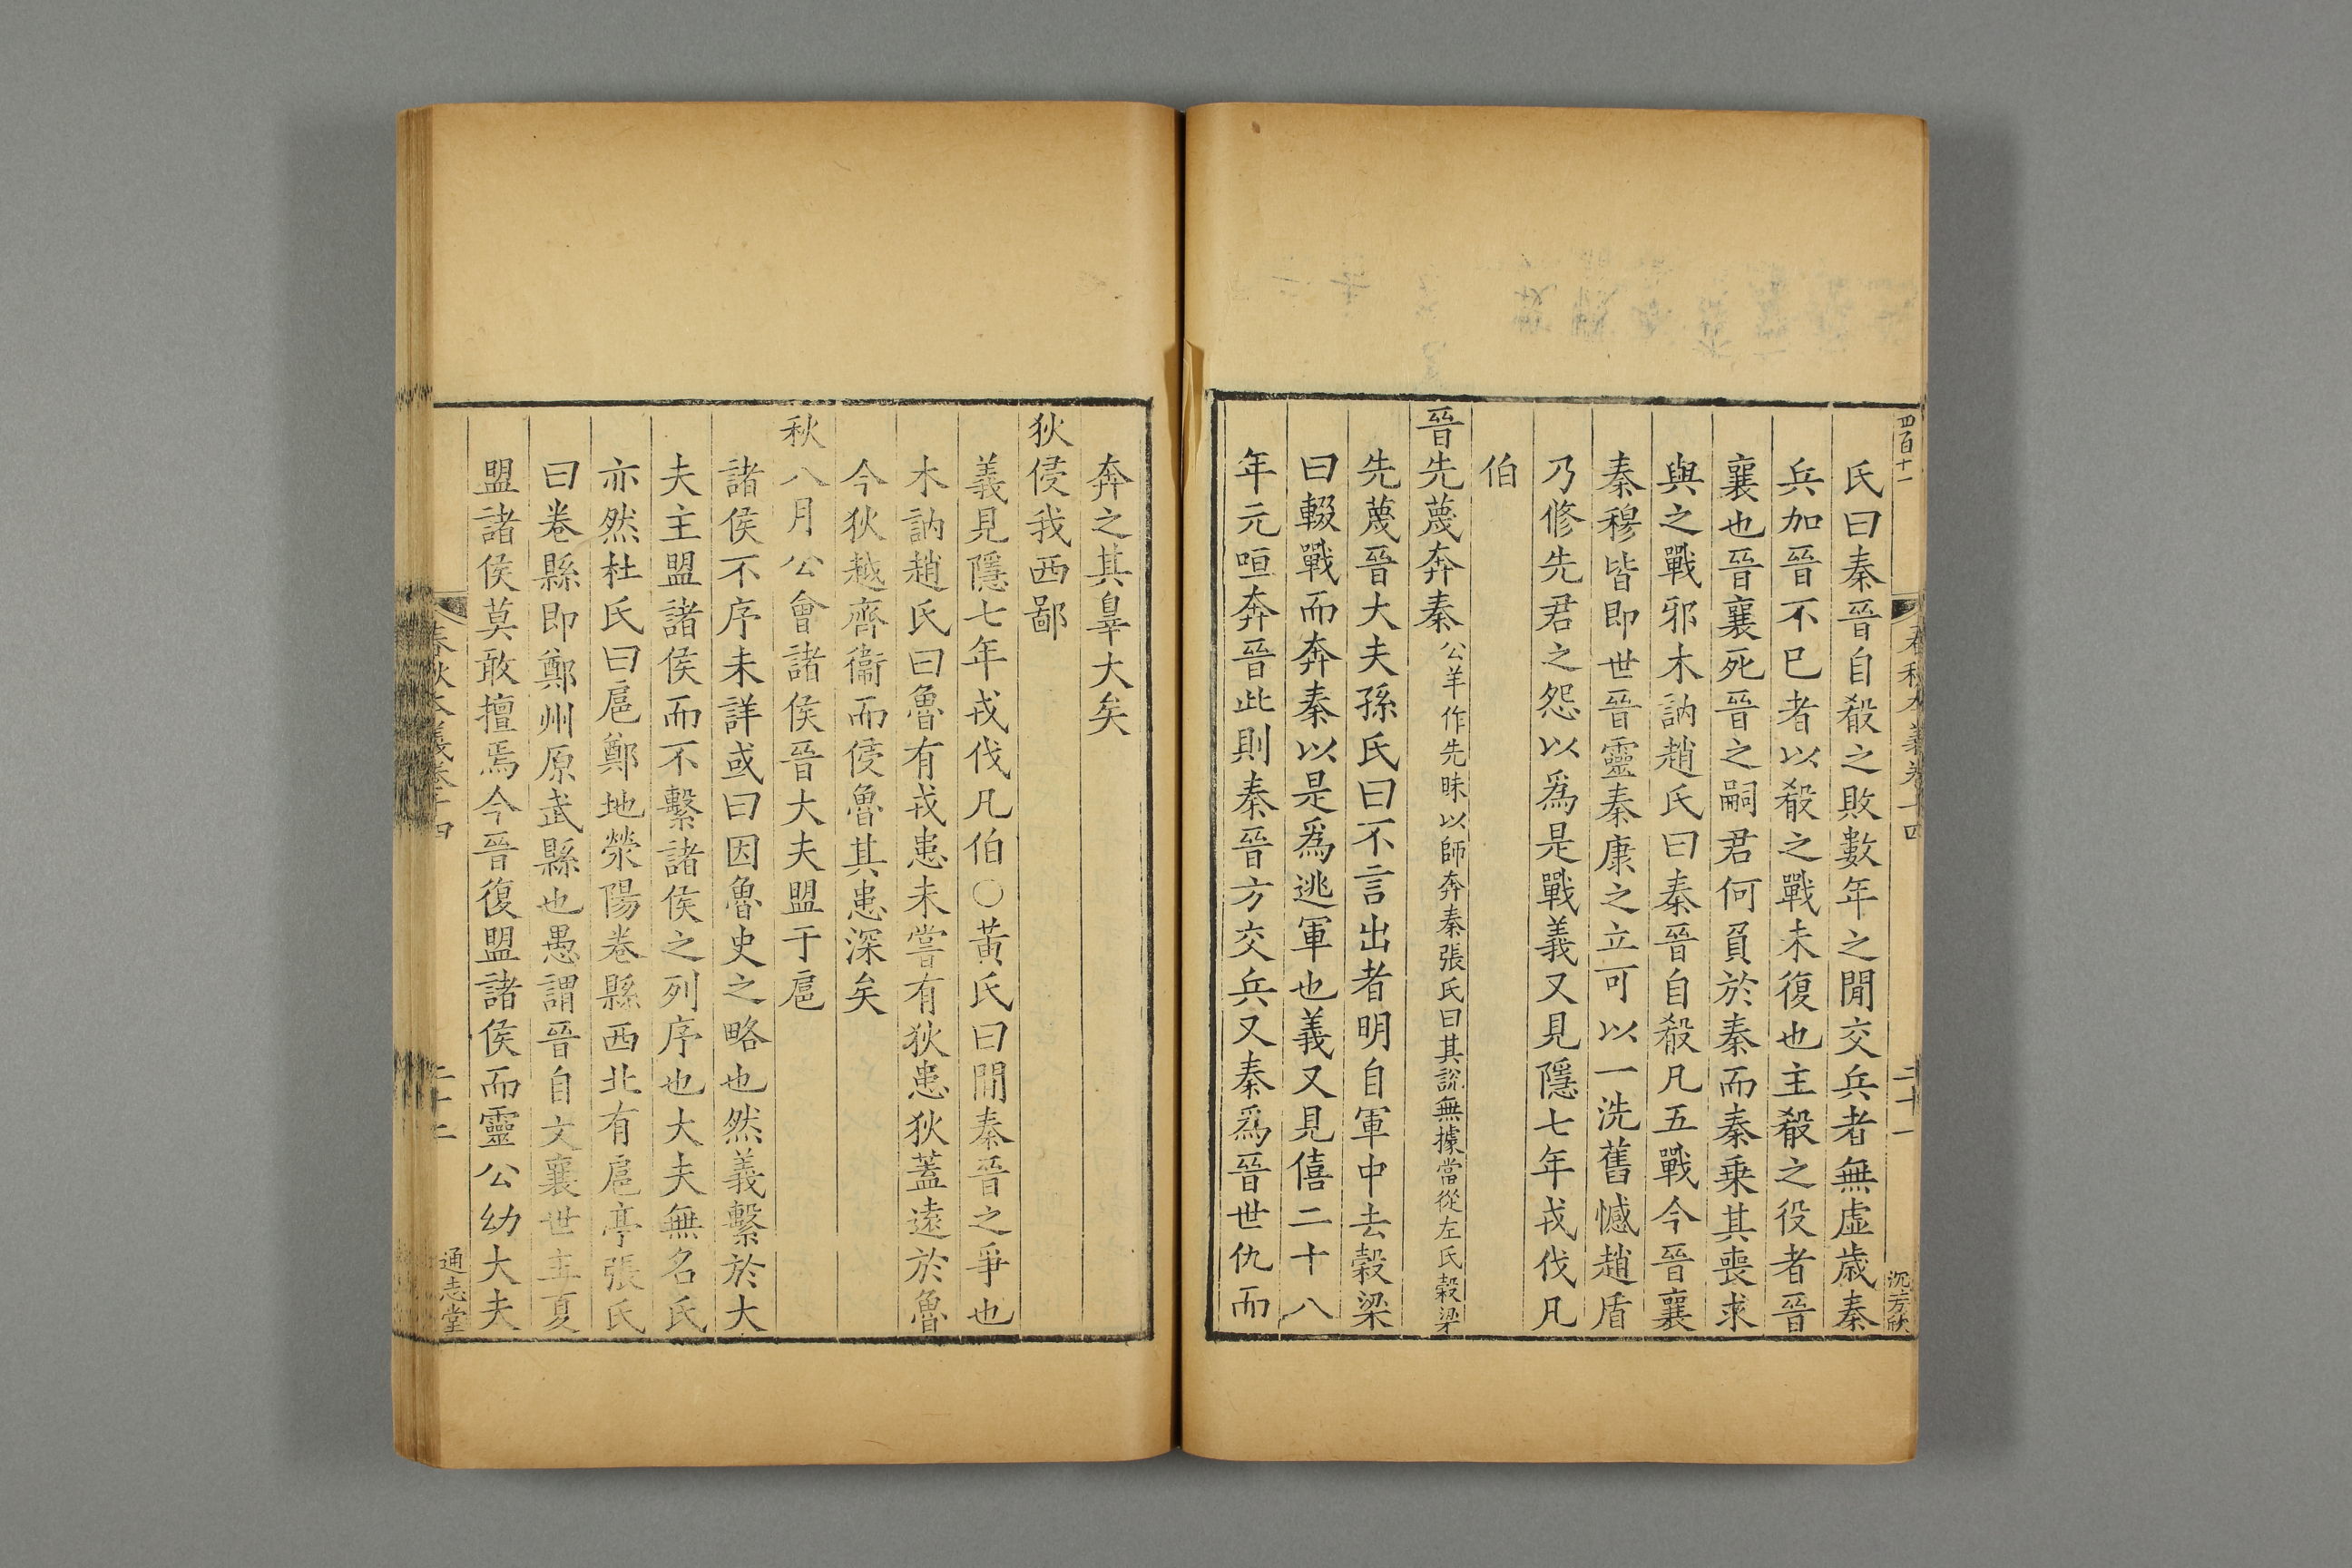 四百十一
春秋本義卷十四
二十一
氏曰秦晉自殽之敗數年之閒交兵者無虛歲秦
兵加晉不已者以殽之戰未復也主殽之役者晉
襄也晉襄死晉之嗣君何負於秦而秦乗其喪求
與之戰邪木訥趙氏曰秦晉自殽凡五戰今晉襄
秦穆皆即世晉靈秦康之立可以一洗舊憾趙盾
乃修先君之怨以爲是戰義又見隱七年戎伐凡
伯
晉先蔑奔秦公羊作先眛以師奔秦張氏曰其說無據當從左氏穀梁
先蔑晉大夫孫氏曰不言出者明自軍中去穀梁
曰輟戰而奔秦以是爲逃軍也義又見僖二十八
年元咺奔晉此則秦晉方交兵又秦爲晉世仇而
奔之其辠大矣
狄侵我西鄙
義見隱七年戎伐凡伯○黃氏曰閒秦晉之爭也
木訥趙氏曰魯有戎患未嘗有狄患狄蓋遠於魯
今狄越齊衞而侵魯其患深矣
秋八月公會諸侯晉大夫盟于扈
諸侯不序未詳或曰因魯史之略也然義繫於大
夫主盟諸侯而不繫諸侯之列序也大夫無名氏
亦然杜氏曰扈鄭地滎陽卷縣西北有扈亭張氏
曰卷縣即鄭州原武縣也愚謂晉自文襄世主夏
盟諸侯莫敢擅焉今晉復盟諸侯而靈公幼大夫
春秋本義卷十四
二十二
通志堂